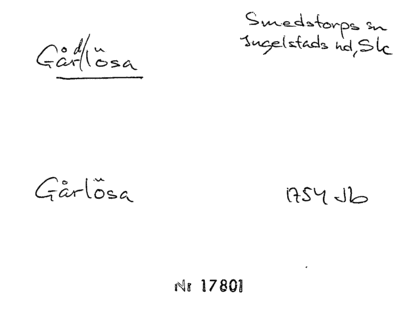 Smedstorps sn
Ingelstads hd, Sk
Gårdlösa
Gårlösa
1754 Jb
Nr 17801